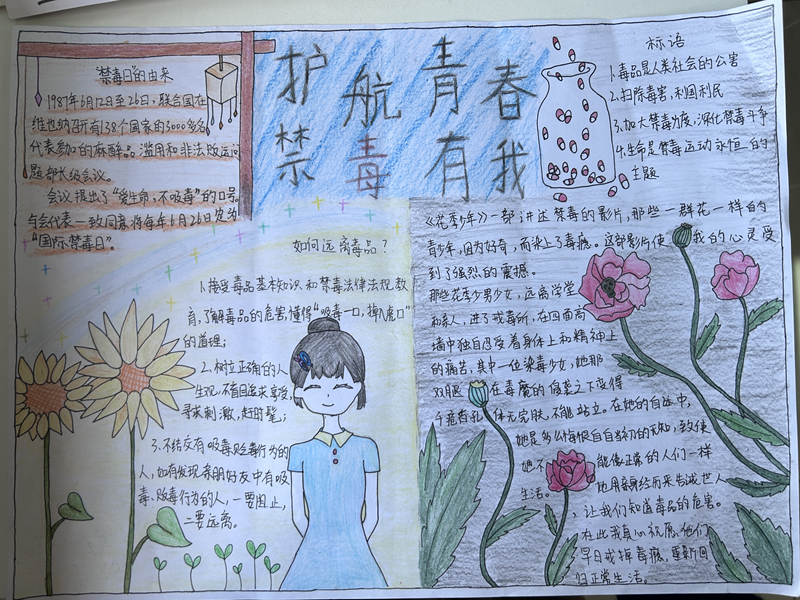 "禁毒日"的由来
1987年6月12日至26日,联合国在
维也纳召开有138个国家的3000多名
代表参加的麻醉品滥用和非法贩运问
题部长级会议。
会议提出了"爱生命,不吸毒"的口号。
与会代表一致同意将每年6月26日定为
"国际禁毒日"。
护航青春
禁毒有我
标语
1.毒品是人类社会的公害
2.扫除毒害,利国利民
3.加大禁毒力度,深化禁毒斗争
4.生命是禁毒运动永恒的
主题
如何远离毒品?
1.接受毒品基本知识和禁毒法律法规教
育,了解毒品的危害,懂得"吸毒一口,掉入虎口"
的道理;
2.树立正确的人
生观,不盲目追求享受,
寻求刺激,赶时髦;
3.不结交有吸毒贩毒行为的
人,如有发现亲朋好友中有吸
毒、贩毒行为的人,一要阻止,
二要远离。
《花季少年》一部讲述禁毒的影片,那些一群花一样的
青少年,因为好奇,而染上了毒瘾。这部影片使我的心灵受
到了强烈的震撼。
那些花季少男少女,远离学堂
和亲人,进了戒毒所,在四面高
墙中独自忍受着身体上和精神上
的痛苦,其中一位染毒少女,她那
双眼在毒魔的侵袭之下变得
千疮百孔,体无完肤,不能站立。在她的自述中,
她是多么悔恨自自当初的无知,致使
她不能像正常的人们一样
生活。她用亲身经历来告诫世人
,让我们知道毒品的危害。
在此我真心祝愿他们
早日戒掉毒瘾,重新回
归正常生活。